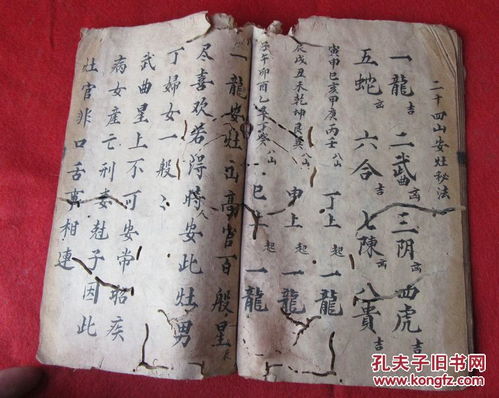 二十四山安灶秘法
一龍吉 二武曲凶 三阴凶 四虎吉
五蛇凶 六合吉 七陳凶 八貴吉
寅申巳亥甲庚丙壬八山 丁上起一龍
辰戌丑未乾坤艮巽八山 申上起一龍
子午卯酉乙辛丁癸八山 巳上起一龍
一龍安灶出高官百般星
尽喜欢若得将人安此灶男
丁婦女一般
武曲星上不可安常招疾
病女産亡刑妻尅子因此
灶官非口舌相連
孔夫子旧书网
www.kongfz.com